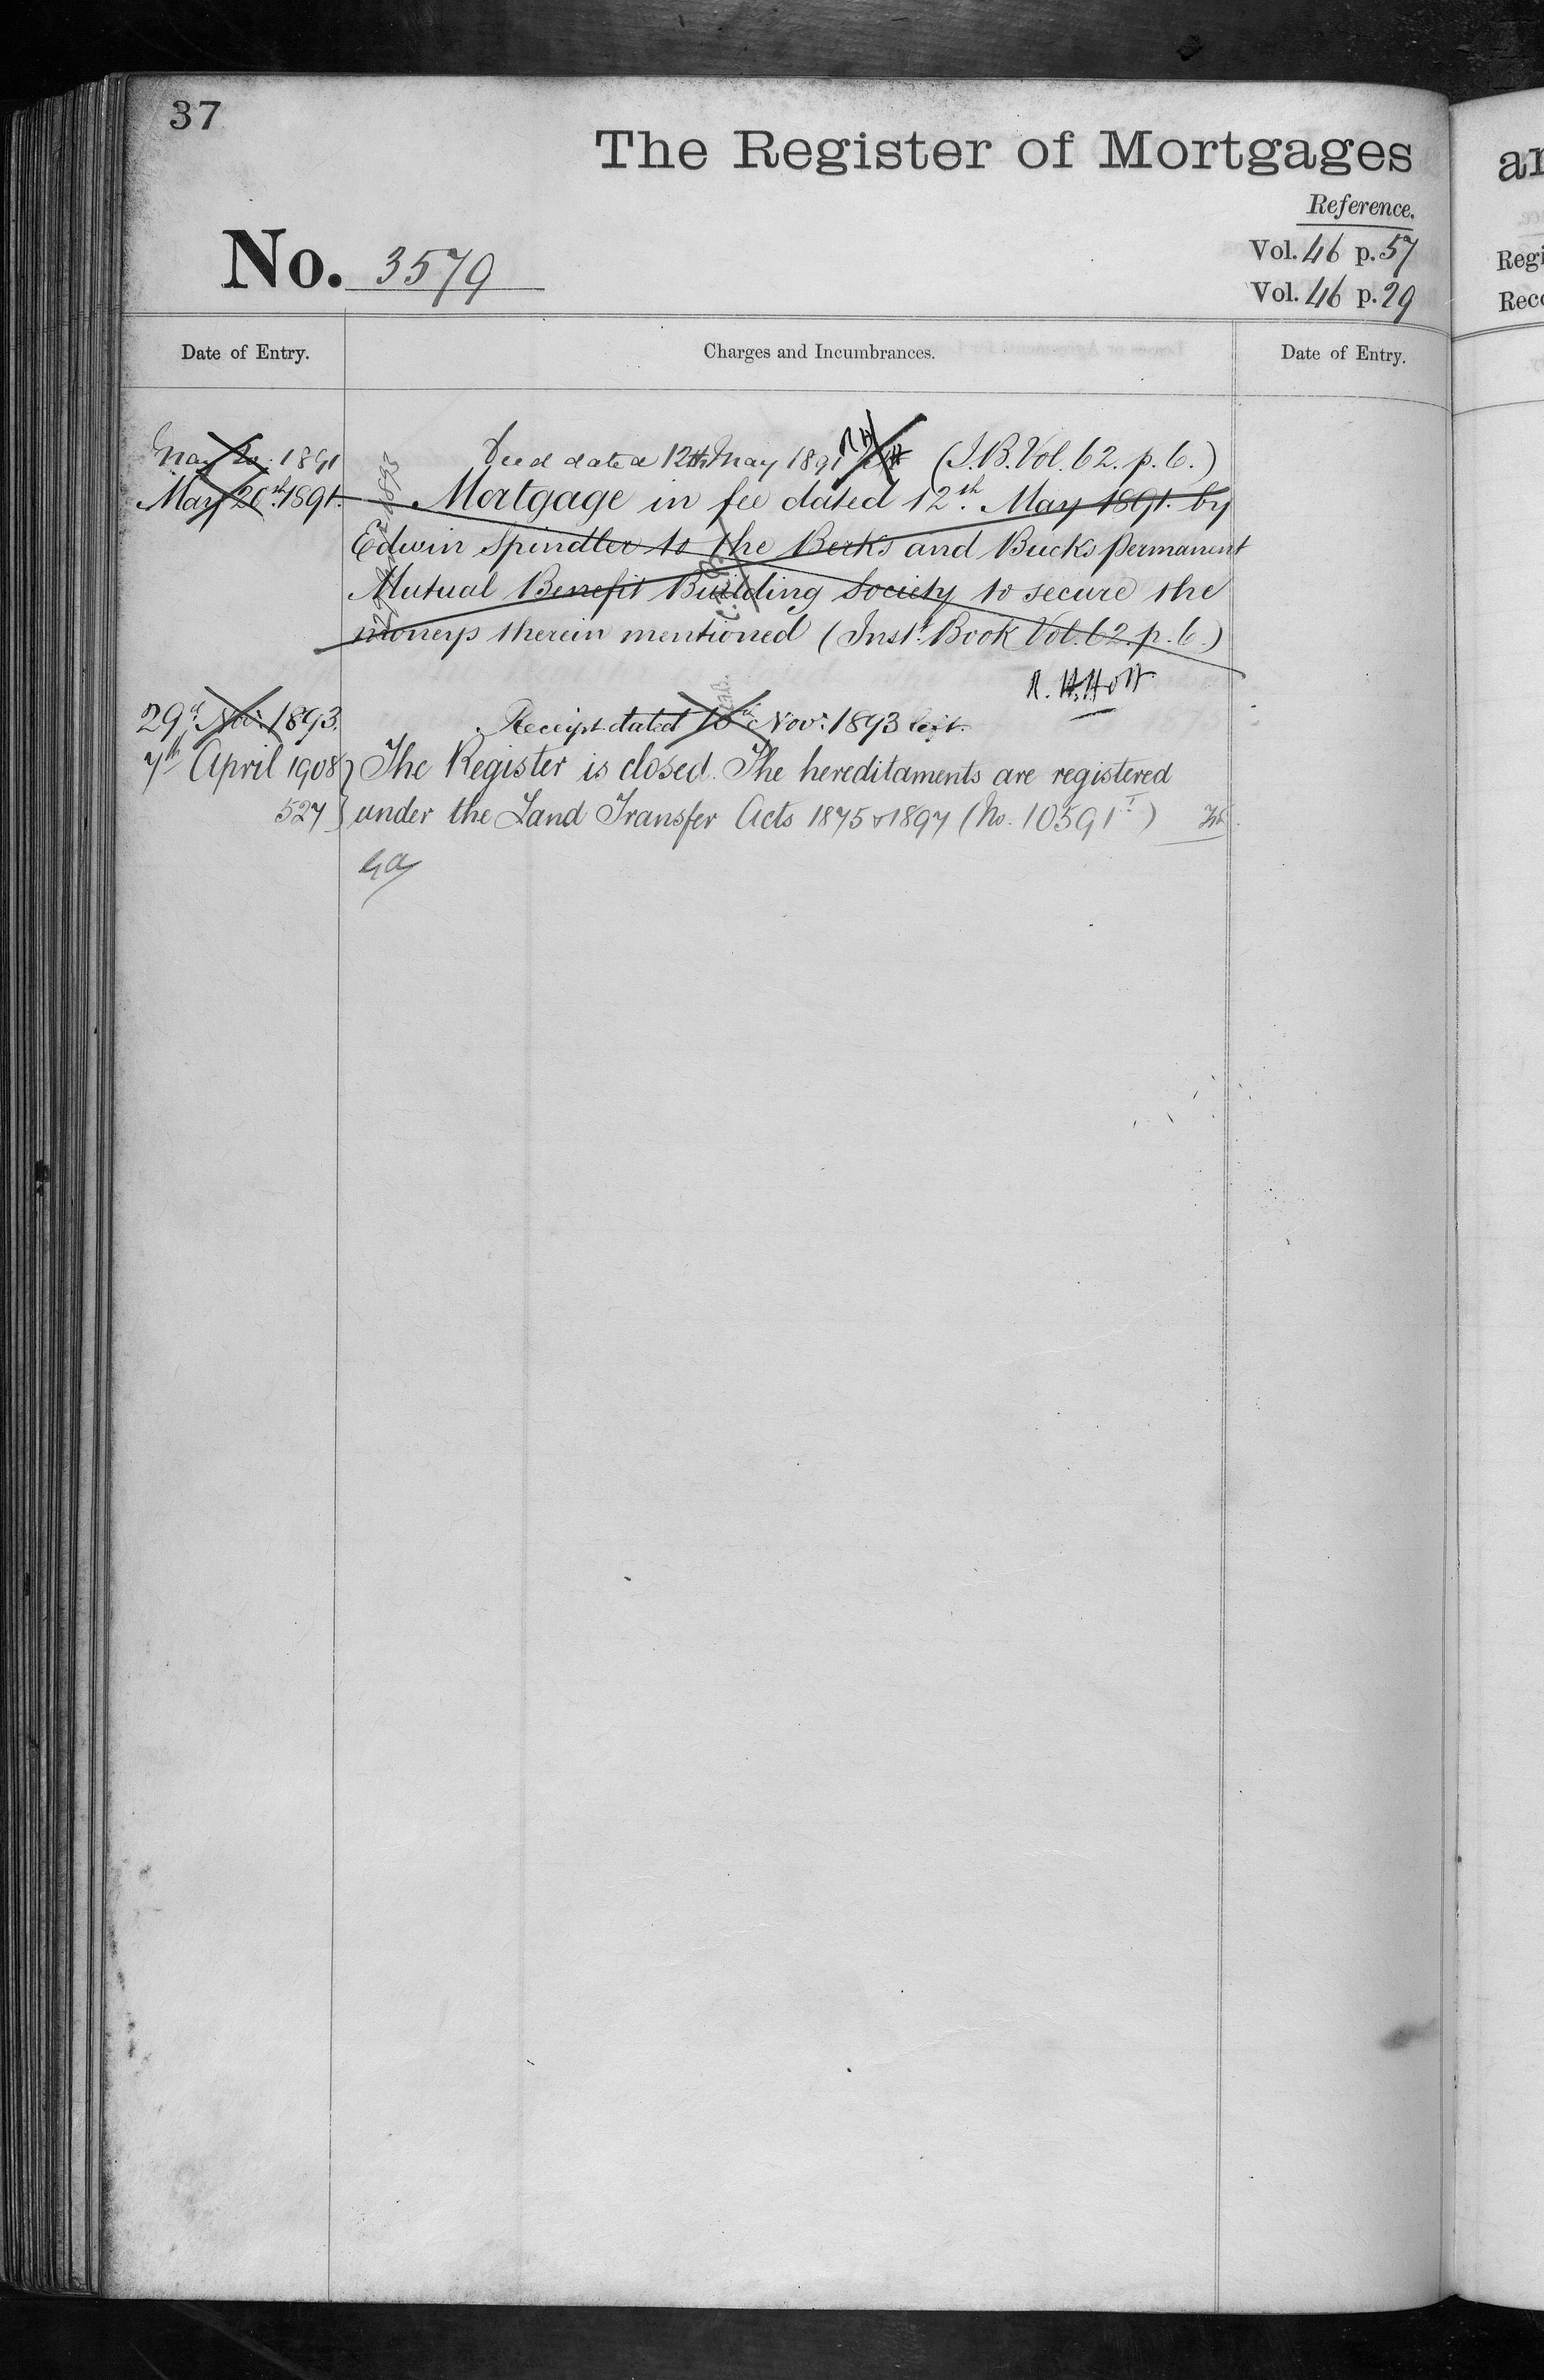 37
The Register of Mortgages
Reference.
No. 3579
Vol. 46 p. 57
Vol. 46 p. 29
Date of Entry.
Charges and Incumbrances.
Date of Entry.
May 20 1891
Deed dated 12th May 1891 (I.B. Vol. 62. p. 6.)
May 20th 1891.
Mortgage in fee dated 12th. May 1891. by
Edwin Spindler to the Berks and Bucks Permanent
Mutual Benefit Building Society to secure the
moneys therein mentioned (Inst. Book Vol. 62. p. 6.)
R. H. Holt
29th Nov. 1893.
Receipt dated Nov. 1893 left.
7th April 1908
The Register is closed. The hereditaments are registered
527
under the Land Transfer Acts 1875 & 1897 (No. 10591 I)
an
Regi
Reco